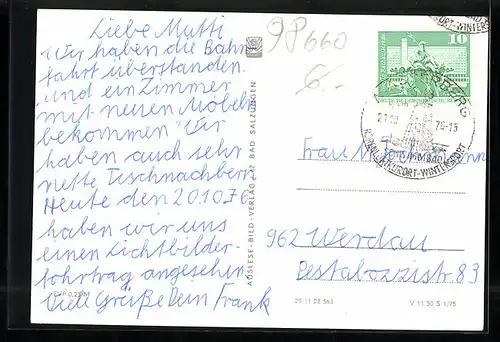 Liebe Mutti
Wir haben die Bahn
fahrt überstanden
und ein Zimmer
mit neuen Möbeln
bekommen Wir
haben auch sehr
nette Tischnachbern
Heute den 20.10.76
haben wir uns
einen Lichtbilder-
fohrtrag angesehen
Viel Grüße Dein Frank
EVP 0,25 M
AUSLESE-BILD-VERLAG 62 BAD SALZUNGEN
98660
6.-
10
DEUTSCHE DEMOKRATISCHE REPUBLIK
76-15
KURORT-WINTERSPORT
Frau M.
962 Werdau
Pestalozzistr. 83
09 11 02 563
V 11 50 S 1/75